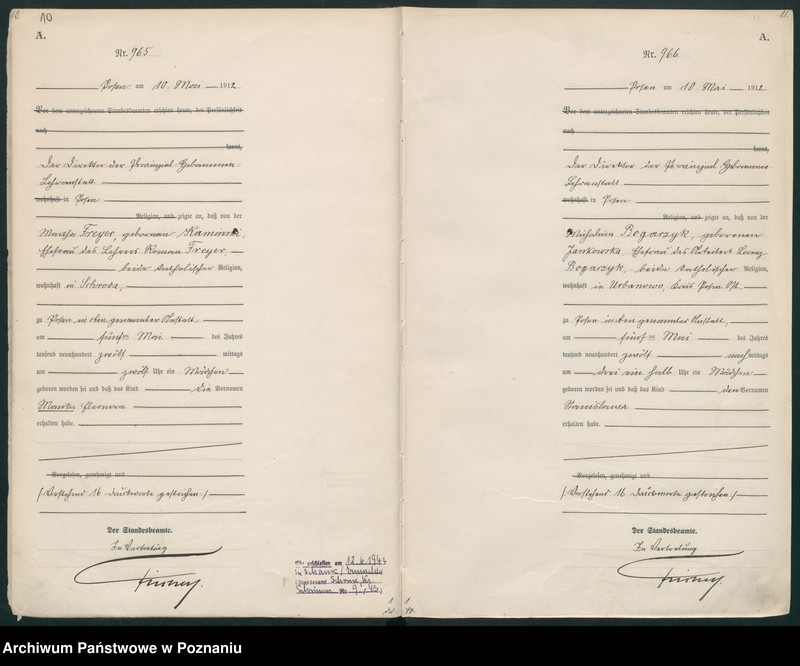 10
A.
Nr. 965
Posen am 10. Mai 1912
Vor dem unterzeichneten Standesbeamten erschien heute, der Persönlichkeit
nach
kannt,
Der Direktor der Provinzial-Hebammen
Lehranstalt
wohnhaft in Posen
Religion, und zeigte an, daß von der
Martha Freyer, geborenen Kaminski,
Ehefrau des Lehrers Roman Freyer,
beide katholischer Religion,
wohnhaft in Schroda,
zu Posen in der genannten Anstalt
am fünften Mai des Jahres
tausend neunhundert zwölf mittags
um zwölf Uhr ein Mädchen
geboren worden sei und daß das Kind die Vornamen
Monika Eleonora
erhalten habe.
Vorgelesen, genehmigt und
(Vorstehend 16 Druckworte gestrichen.)
Der Standesbeamte.
In Vertretung
Ehe geschlossen am 12.6.1943
Standesamt
Nr. 9/43
11.
A.
Nr. 966
Posen am 10 Mai 1912
Vor dem unterzeichneten Standesbeamten erschien heute, der Persönlichkeit
nach
kannt,
Der Direktor der Provinzial Hebammen
Lehranstalt
wohnhaft in Posen
Religion, und zeigte an, daß von der
Michalina Bogarzyk, geborenen
Jankowska, Ehefrau des Arbeiters Lorenz
Bogarzyk, beide katholischer Religion,
wohnhaft in Urbanowo, Kreis Posen Ost
zu Posen in der genannten Anstalt,
am fünften Mai des Jahres
tausend neunhundert zwölf nachmittags
um drei ein halb Uhr ein Mädchen
geboren worden sei und daß das Kind den Vornamen
Stanislawa
erhalten habe.
Vorgelesen, genehmigt und
(Vorstehend 16 Druckworte gestrichen.)
Der Standesbeamte.
In Vertretung
Archiwum Państwowe w Poznaniu